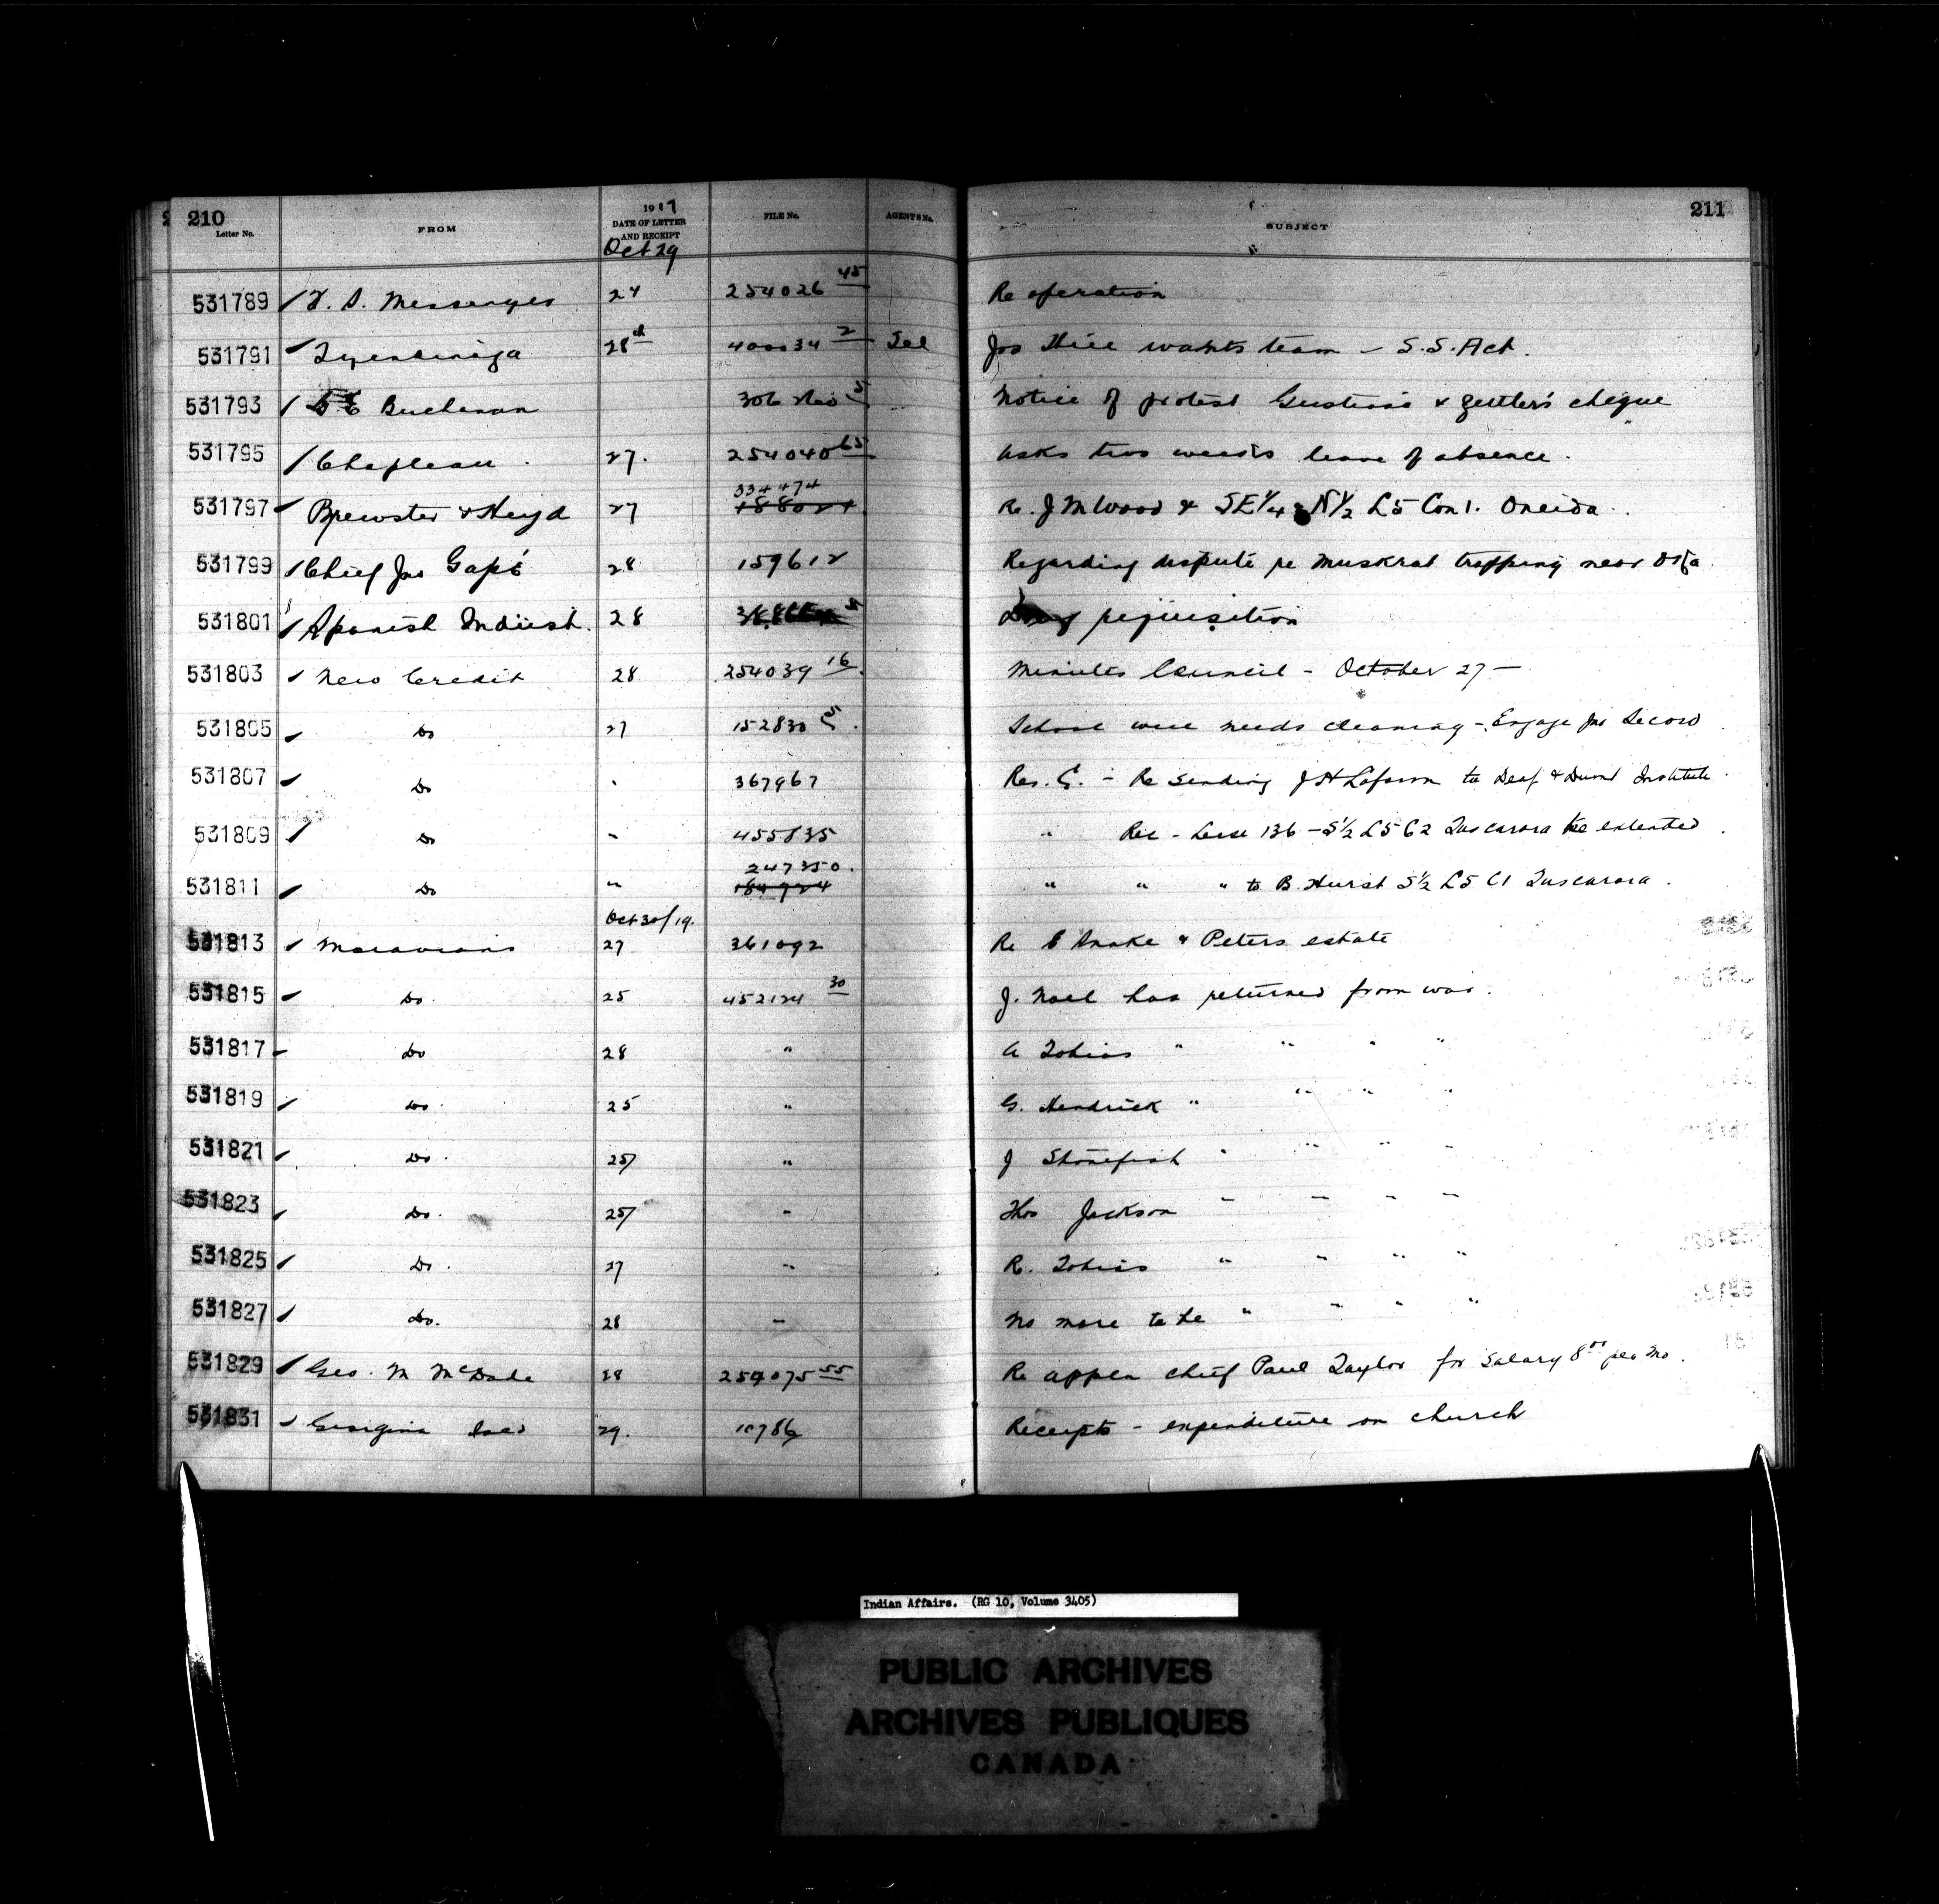 210
211
Letter No.
FROM
1919
DATE OF LETTER AND RECEIPT
FILE No.
AGENTS No.
SUBJECT
Oct 29
531789 24 254026 45 Re operation
531791 Tyendinaga 28 400034 2 Tel Jos Hill wants team - S.S. Act.
531793 Buchanan Notice of protest & cheque
531795 Chapleau 27. 254040 65 Asks two weeks leave of absence.
531797 Brewster & Heyd 27 334474 Re. J M Wood & SE 1/4 N 1/2 L5 Con 1. Oneida.
531799 Chief Jos Gapé 28 159612 Regarding dispute re muskrat trapping near
531801 Spanish Indust. 28 requisition
531803 New Credit 28 254039 16 Minutes Council - October 27 -
531805 Do 27 152830 5 School well needs cleaning - Engage Jno Secord
531807 Do " 367967 Res. C. - Re sending J H to Deaf & Dumb Institute.
531809 Do " 455835 " Re - Lease 136 - S 1/2 L5 C2 Tuscarora be extended
531811 Do " 247350. 184924 " " " to B. Hurst S 1/2 L5 C1 Tuscarora.
Oct 30/19.
531813 Moravians 27 361092 Re E Snake & Peters estate
531815 Do. 25 452124 30 J. Noel has returned from war.
531817 Do 28 " A Tobias " " " "
531819 Do. 25 " G. Hendrick " " " "
531821 Do. 25 " J Stonefish " " " "
531823 Do. 25 " Thos Jackson " " " "
531825 Do. 27 " R. Tobias " " " "
531827 Do. 28 " No more to be " " " "
531829 Geo. M McDade 28 254075 55 Re appln chief Paul Taylor for salary 8.00 per mo.
531831 Georgina Isld 29. 10786 Receipts - expenditure on church
Indian Affairs. (RG 10, Volume 3405)
PUBLIC ARCHIVES
ARCHIVES PUBLIQUES
CANADA